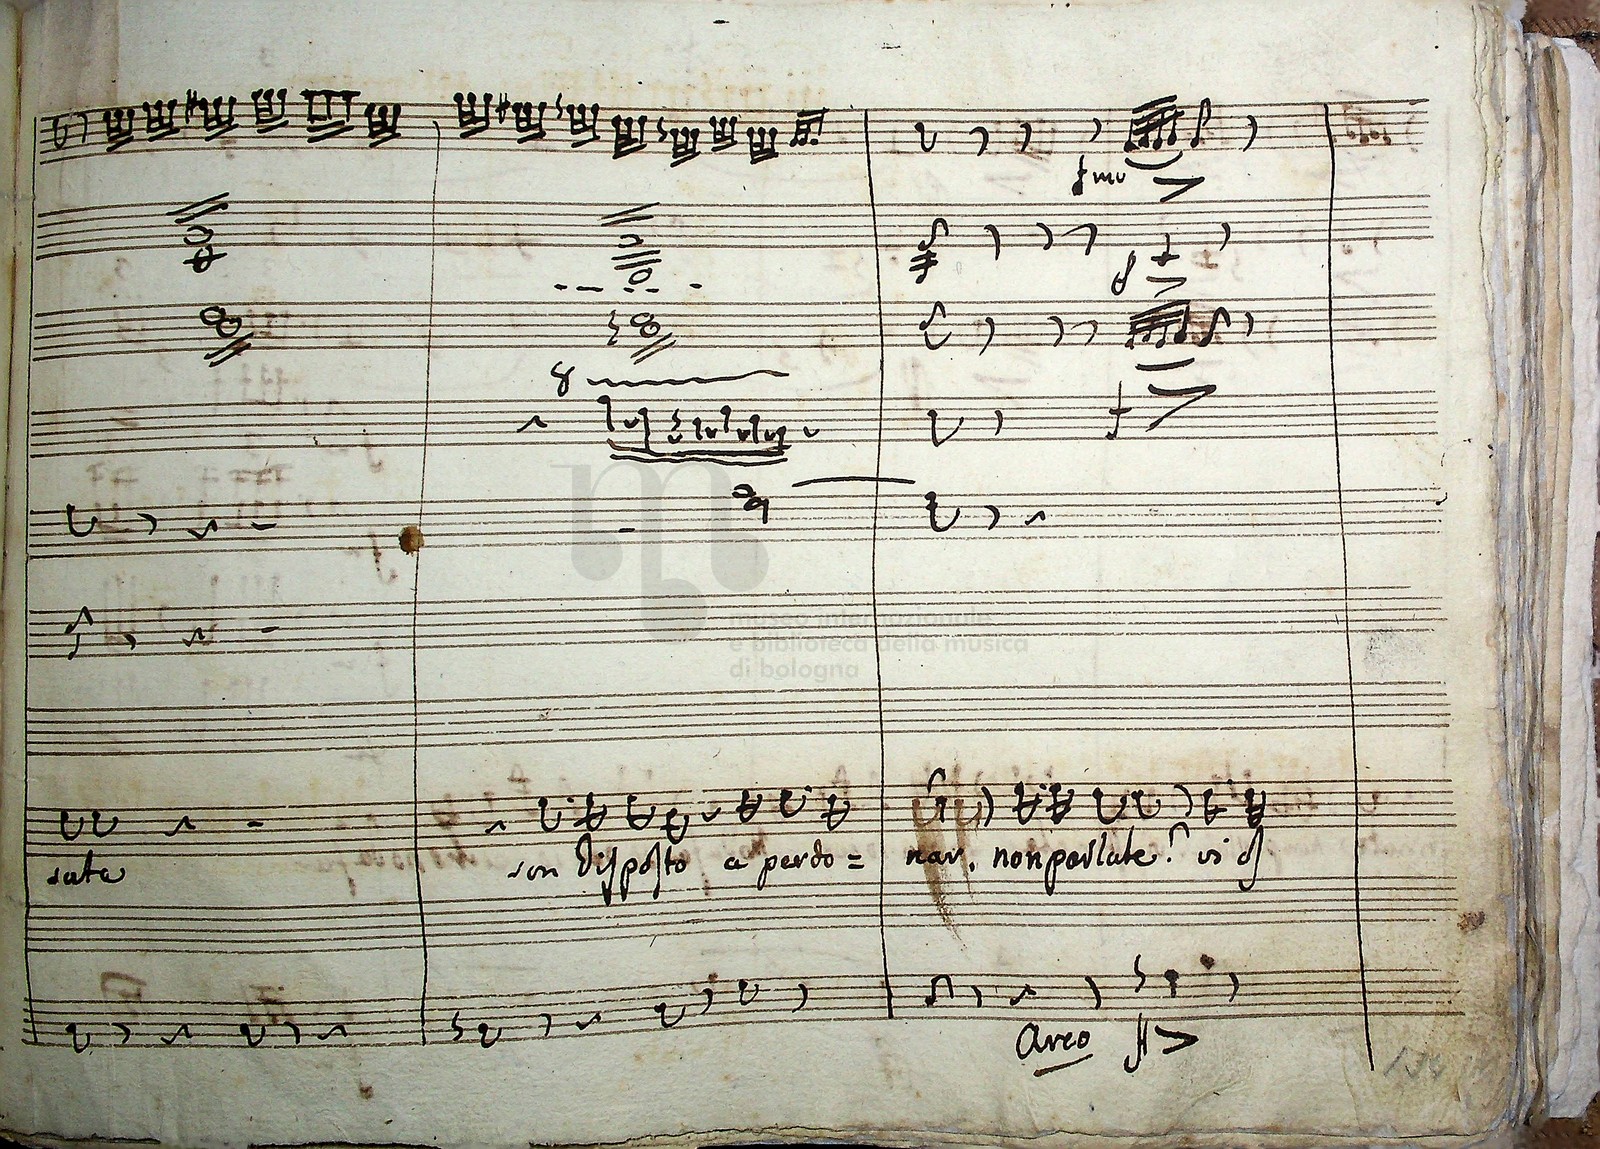 fmo
8
f
museo internazionale
e biblioteca della musica
di bologna
sate son disposto a perdo= nar. non parlate? vi
Arco